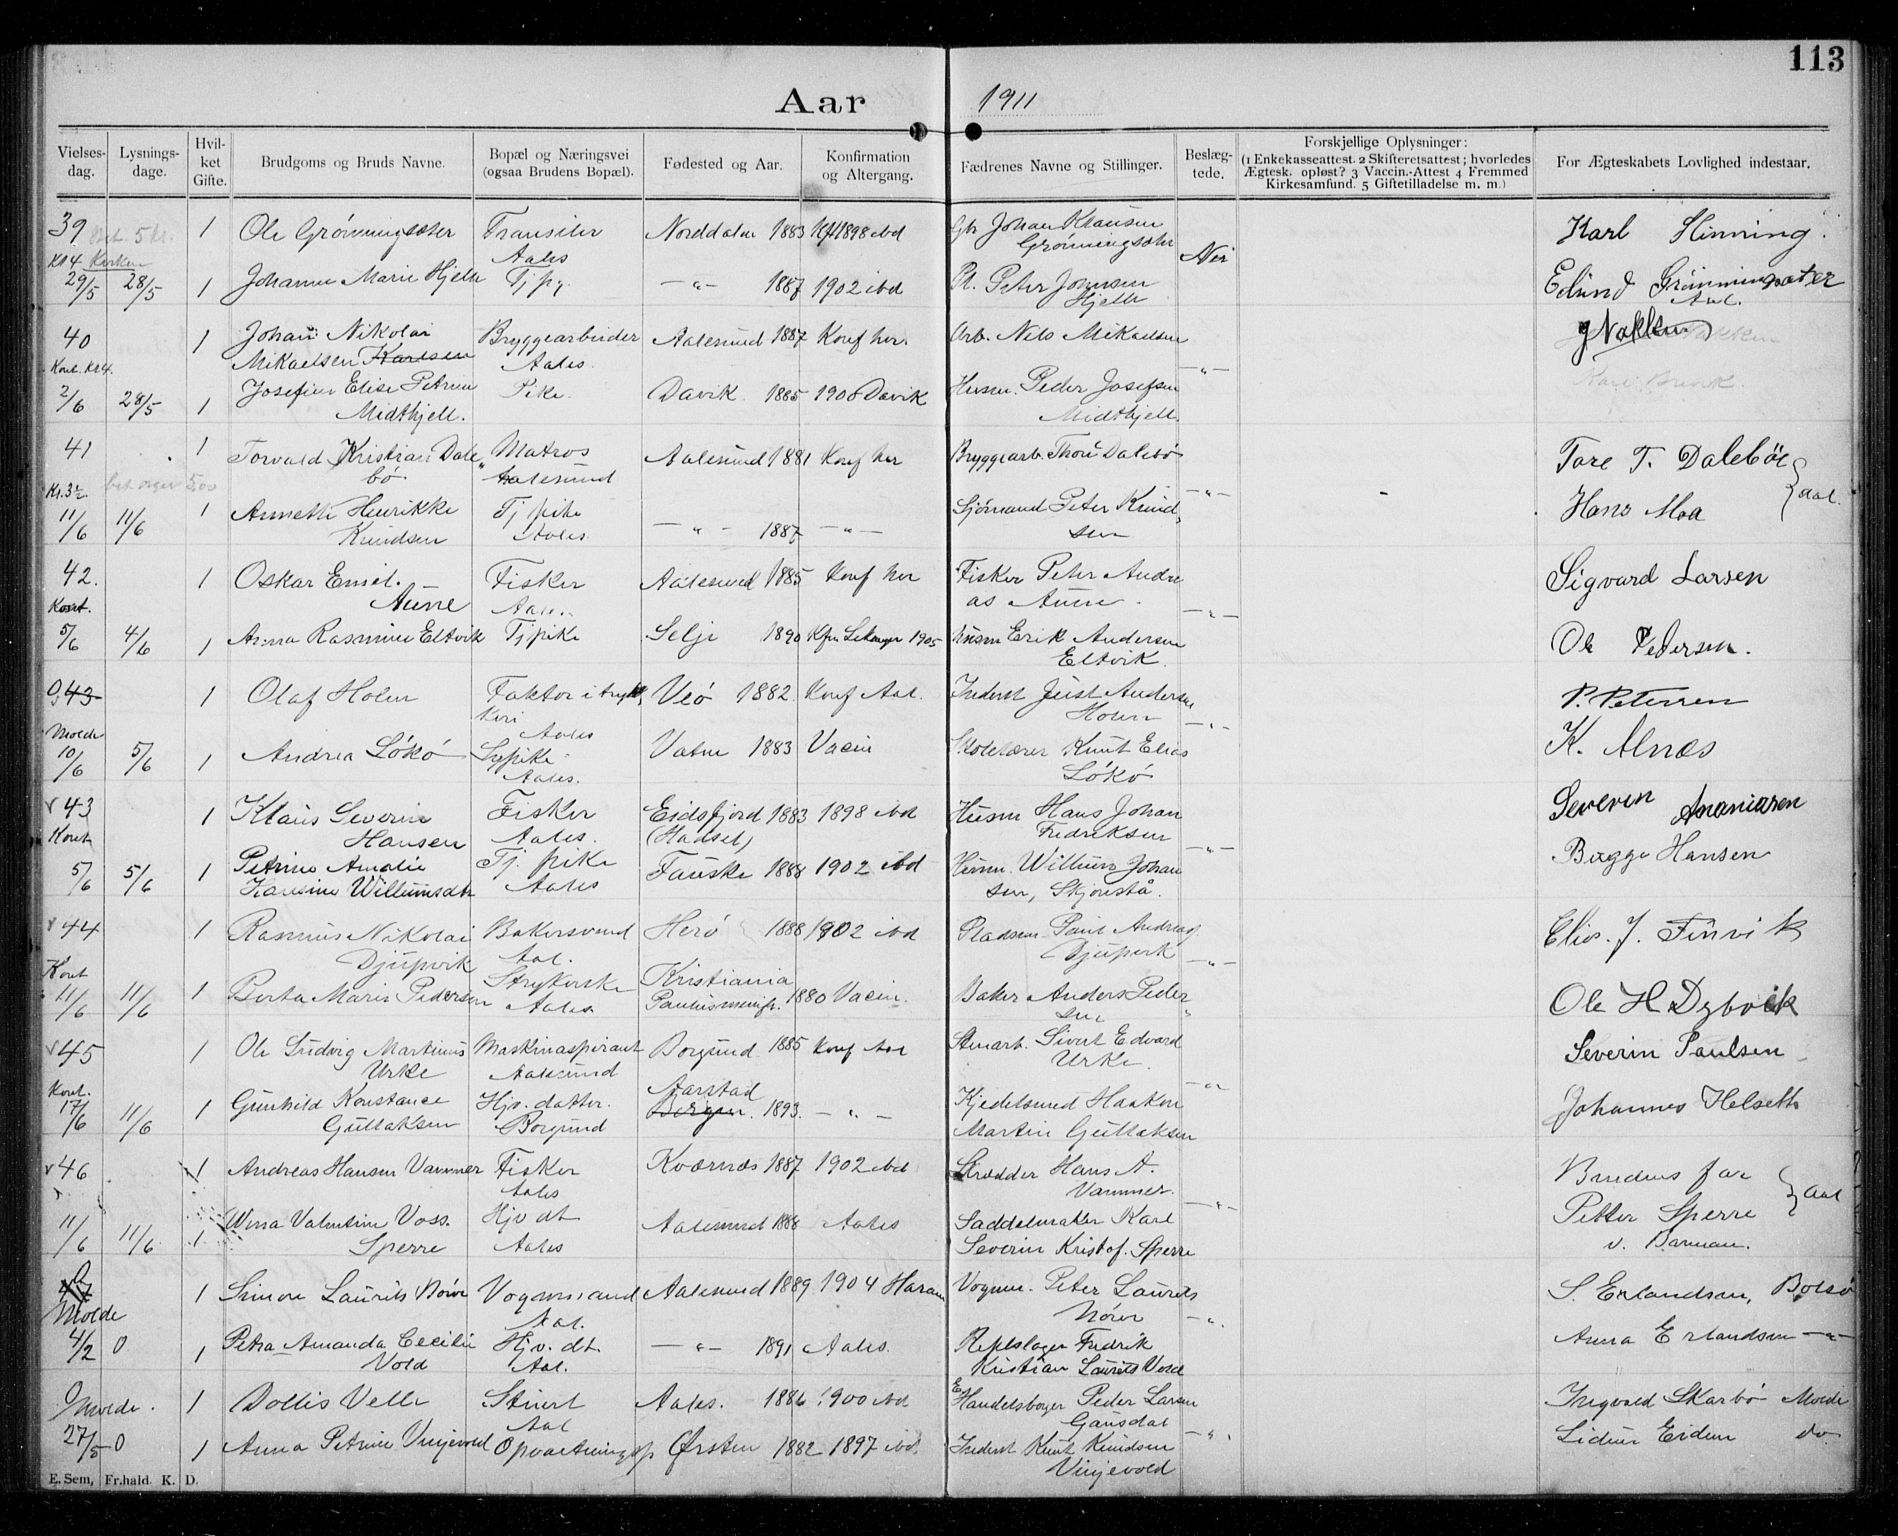 113
Aar 1911
Vielses-dag. Lysnings-dage. Hvil-ket Gifte. Brudgoms og Bruds Navne. Bopæl og Næringsvei (ogsaa Brudens Bopæl). Fødested og Aar. Konfirmation og Altergang. Fædrenes Navne og Stillinger. Beslæg-tede. Forskjellige Oplysninger: (1 Enkekasseattest. 2 Skifteretsattest; hvorledes Ægtesk. opløst? 3 Vaccin.-Attest 4 Fremmed Kirkesamfund. 5 Giftetilladelse m. m.) For Ægteskabets Lovlighed indestaar.
39 1 Ole Grønningsæter Norddalen 1883 Kf 1898 ibd Gbr Johan Klausen Karl
Aales Grønningsæter Nei
29/5 28/5 1 Johanne Marie Hjelle Tj pg. —"— 1887 1902 ibd Pl. Peter Johnsen Edund Grønningsæter
Hjelle Aal.
40 1 Johan Nikolai Bryggearbeider Aalesund 1887 Konf her. Arb. Nils Mikaelsen
Mikaelsen Karlsen Aales.
2/6 28/5 1 Josefine Elise Petrine Pike Davik 1885 1900 Davik Husm. Peder Josefsen —"—
Midthjell. Midthjell.
41 1 Torvald Kristian Dale Matros Aalesund 1881 Konf her Bryggearb. Thor Dalebø Tore T. Dalebø
bø. Aalesund —"— } Aal.
11/6 11/6 1 Annette Henrikke Tj pike —"— 1887 —"— Sjømand Peter Knud Hans Moa
Knudsen Aales. sen
42. 1 Oskar Emil Fisker Aalesund 1885 Konf her Fisker Peter Andre Sigvard Larsen
Aune Aales. as Aune. —"—
5/6 4/6 1 Anna Rasmine Eltvik Tjpike Selje 1890 1905 Husm Erik Andersen Ole Pedersen.
Eltvik.
43 1 Olaf Holen Faktor i tryk Veø 1882 Konf Aal. Andersen P. Petersen
keri Holen —"—
Molde Aales K. Alnæs
10/6 5/6 1 Andrea Løkø Sypike Vatne 1883 Vacin Skolelærer Knut Elias
Aales. Løkø
43 1 Klaus Severin Fisker Eidsfjord 1883 1898 ibd Husm Hans Johan Severin Ananiasen
Hansen Aales. (Hadsel) Fredriksen
5/6 5/6 1 Petrine Amalie Tj. pike Fauske 1888 1902 ibd Husm. Willum Johan —"— Bagge Hansen
Willumsdtr Aales sen, Skjonstå.
44 1 Rasmus Nikolai Bakersvend Herø 1888 1902 ibd Pladsm Paul Andreas Elias. J. Finvik
Djupvik Aal. Djupvik —"—
11/6 11/6 1 Berta Marie Pedersen Strykerske Kristiania 1880 Vacin. Baker Anders Peder Ole H Dybvik
Aales sen
45 1 Ole Ludvig Martinus Maskinaspirant Borgund 1885 Konf Aal Stenarb. Sivert Edvard Severin Paulsen
Urke Aalesund Urke.
17/6 11/6 1 Gunhild Konstance Hjv. datter. Aarstad Bergen. 1893. —"— Kjedelsmed Haakon Johannes Helseth
Gullaksen Borgund Martin Gullaksen
46 1 Andreas Hansen Vammer Fisker Kværnæs 1887 1902 ibd Skrædder Hans A. Brudens far
Aales Vammer. } Aal
11/6 11/6 1 Valentine Voss. Hjv dt Aalesund 1888 Aales Saddelmaker Karl —"— Petter Sperre
Sperre Aales Severin Kristof. Sperre
47 1 Simon Laurits Vognmand Aalesund 1889 1904 Haram Vognm. Peter Laurits S. Erlandsen, Bolsø
Molde Aal. —"—
4/2 0 1 Petra Amanda Cecilie Hjv. dt. —"— 1891 Aales. Repslager Fredrik Anna Erlandsen —"—
Vold Aal. Kristian Laurits Vold
Molde. 1 Dollis Velle Stuert Aales. 1886 1900 ibd Handelsborger Peder Larsen Ingvald Skarbø Molde
Aal Gausdal
27/5 0 1 Anna Petrine Vinjevold Opvartningsp Ørsten 1882 1897 ibd. Inderst Knut Knudsen —"— do
Vinjevold
E. Sem, Fr.hald. K. D.